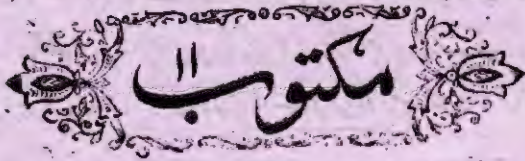 مکتوب ۱۱